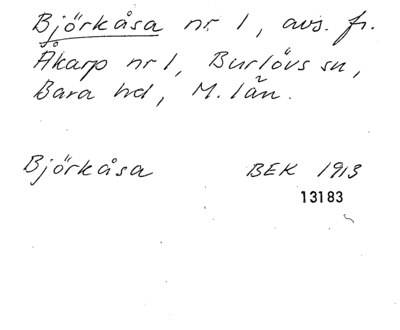 Björkåsa nr 1, avs. fr.
Åkarp nr 1, Burlövs sn,
Bara hd, M. län.
Björkåsa BEK 1913
13183